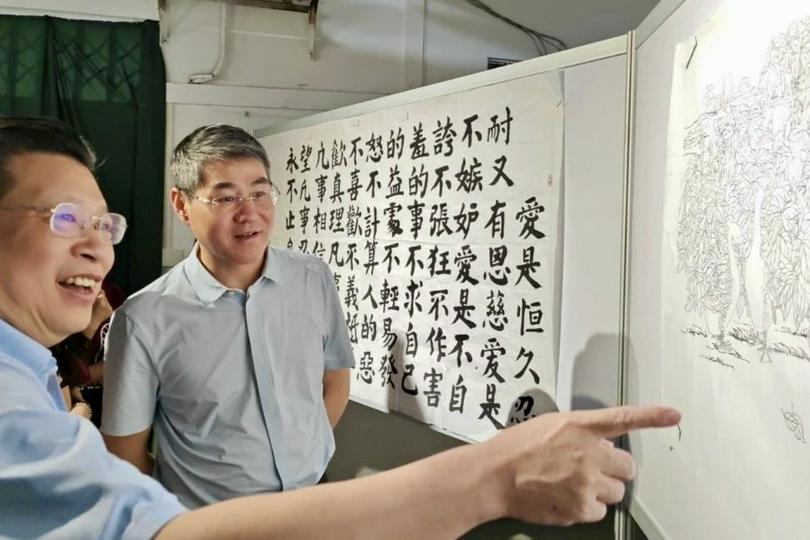 愛是恒久忍
耐又有恩慈愛是
不嫉妒愛是不自
誇不張狂不作害
羞的事不求自己
的益處不輕易發
怒不計算人的惡
不喜歡不義
歡真理凡
凢事相信
望凢事忍
永不止